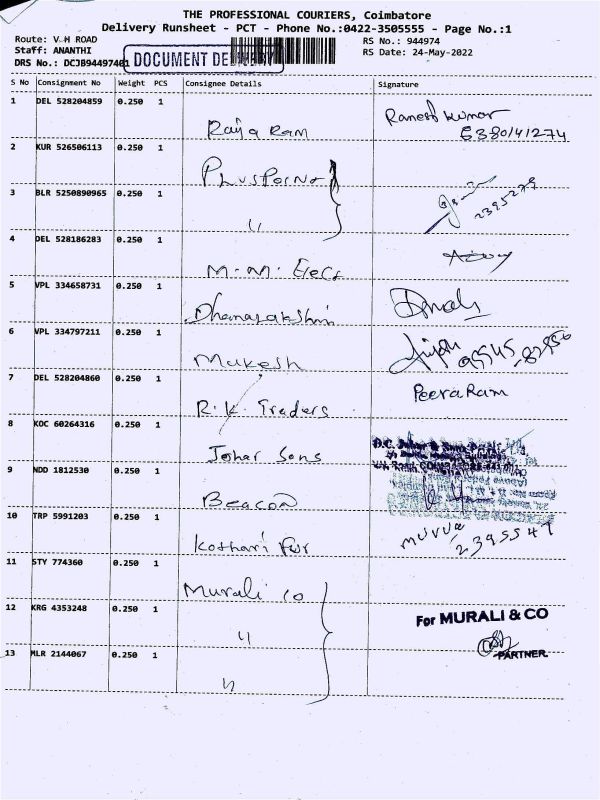 THE PROFESSIONAL COURIERS, Coimbatore
Delivery Runsheet - PCT - Phone No.:0422-3505555 - Page No.:1
Route: V H ROAD
RS No.: 944974
Staff: ANANTHI
RS Date: 24-May-2022
DRS No.: DCJB94497401
DOCUMENT DELIVERY
S No Consignment No Weight PCS Consignee Details Signature
1 DEL 528204859 0.250 1 Raja Ram
6380141274
2 KUR 526506113 0.250 1
3 BLR 5250890965 0.250 1 〃 2395279
4 DEL 528186283 0.250 1 M.M. Elecs
5 VPL 334658731 0.250 1
6 VPL 334797211 0.250 1 Mukesh
7 DEL 528204860 0.250 1 R.K. Traders Peera Ram
8 KOC 60264316 0.250 1 Johar Sons
9 NDD 1812530 0.250 1 Beacon
10 TRP 5991203 0.250 1 Kothari 2395547
11 STY 774360 0.250 1 Murali co
12 KRG 4353248 0.250 1 〃 For MURALI & CO
PARTNER
13 MLR 2144067 0.250 1 〃